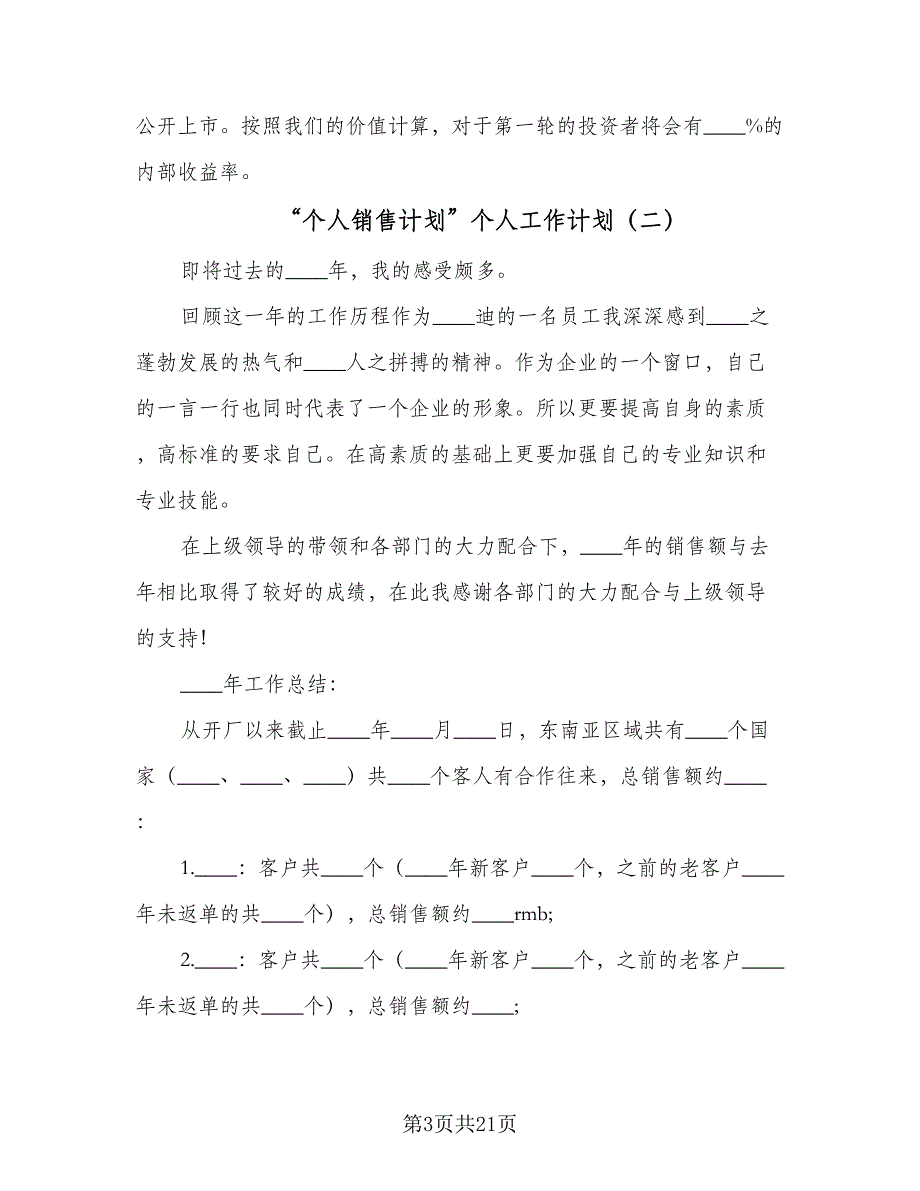 公开上市。按照我们的价值计算，对于第一轮的投资者将会有____%的
内部收益率。
“个人销售计划”个人工作计划（二）
即将过去的____年，我的感受颇多。
回顾这一年的工作历程作为____迪的一名员工我深深感到____之
蓬勃发展的热气和____人之拼搏的精神。作为企业的一个窗口，自己
的一言一行也同时代表了一个企业的形象。所以更要提高自身的素质
，高标准的要求自己。在高素质的基础上更要加强自己的专业知识和
专业技能。
在上级领导的带领和各部门的大力配合下，____年的销售额与去
年相比取得了较好的成绩，在此我感谢各部门的大力配合与上级领导
的支持！
____年工作总结：
从开厂以来截止____年____月____日，东南亚区域共有____个国
家（____、____、____）共____个客人有合作往来，总销售额约____
：
1.____：客户共____个（____年新客户____个，之前的老客户____
年未返单的共____个），总销售额约____rmb;
2.____：客户共____个（____年新客户____个，之前的老客户____
年未返单的共____个），总销售额约____;
第3页共21页